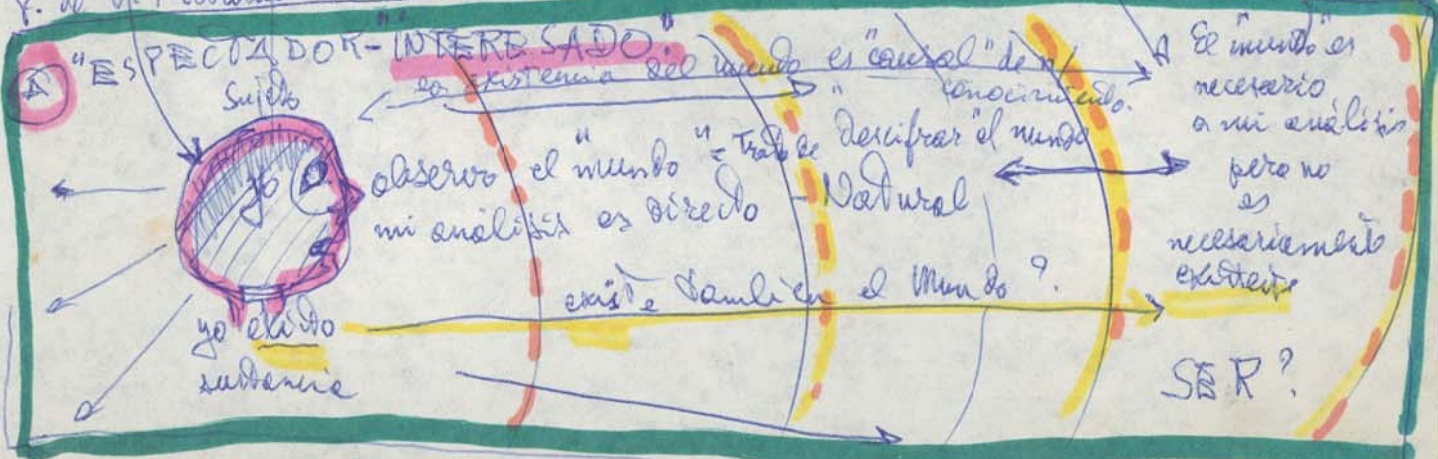 Ⓐ "ESPECTADOR-"INTERESADO."
la existencia del mundo es "causal" de
conocimiento.
Sujeto
yo
observo el "mundo" = Trato de "Descifrar" el mundo
mi análisis es directo - Natural
existe también el Mundo?
yo existo
sustancia
El "mundo" es
necesario
a mi análisis
pero no
es
necesariamente
existente
SER?